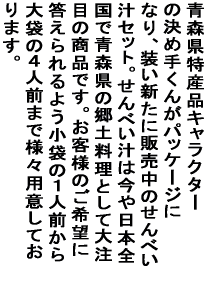 青森県特産品キャラクター
の決め手くんがパッケージに
なり、装い新たに販売中のせんべい
汁セット。せんべい汁は今や日本全
国で青森県の郷土料理として大注
目の商品です。お客様のご希望に
答えられるよう小袋の1人前から
大袋の4人前まで様々用意してお
ります。